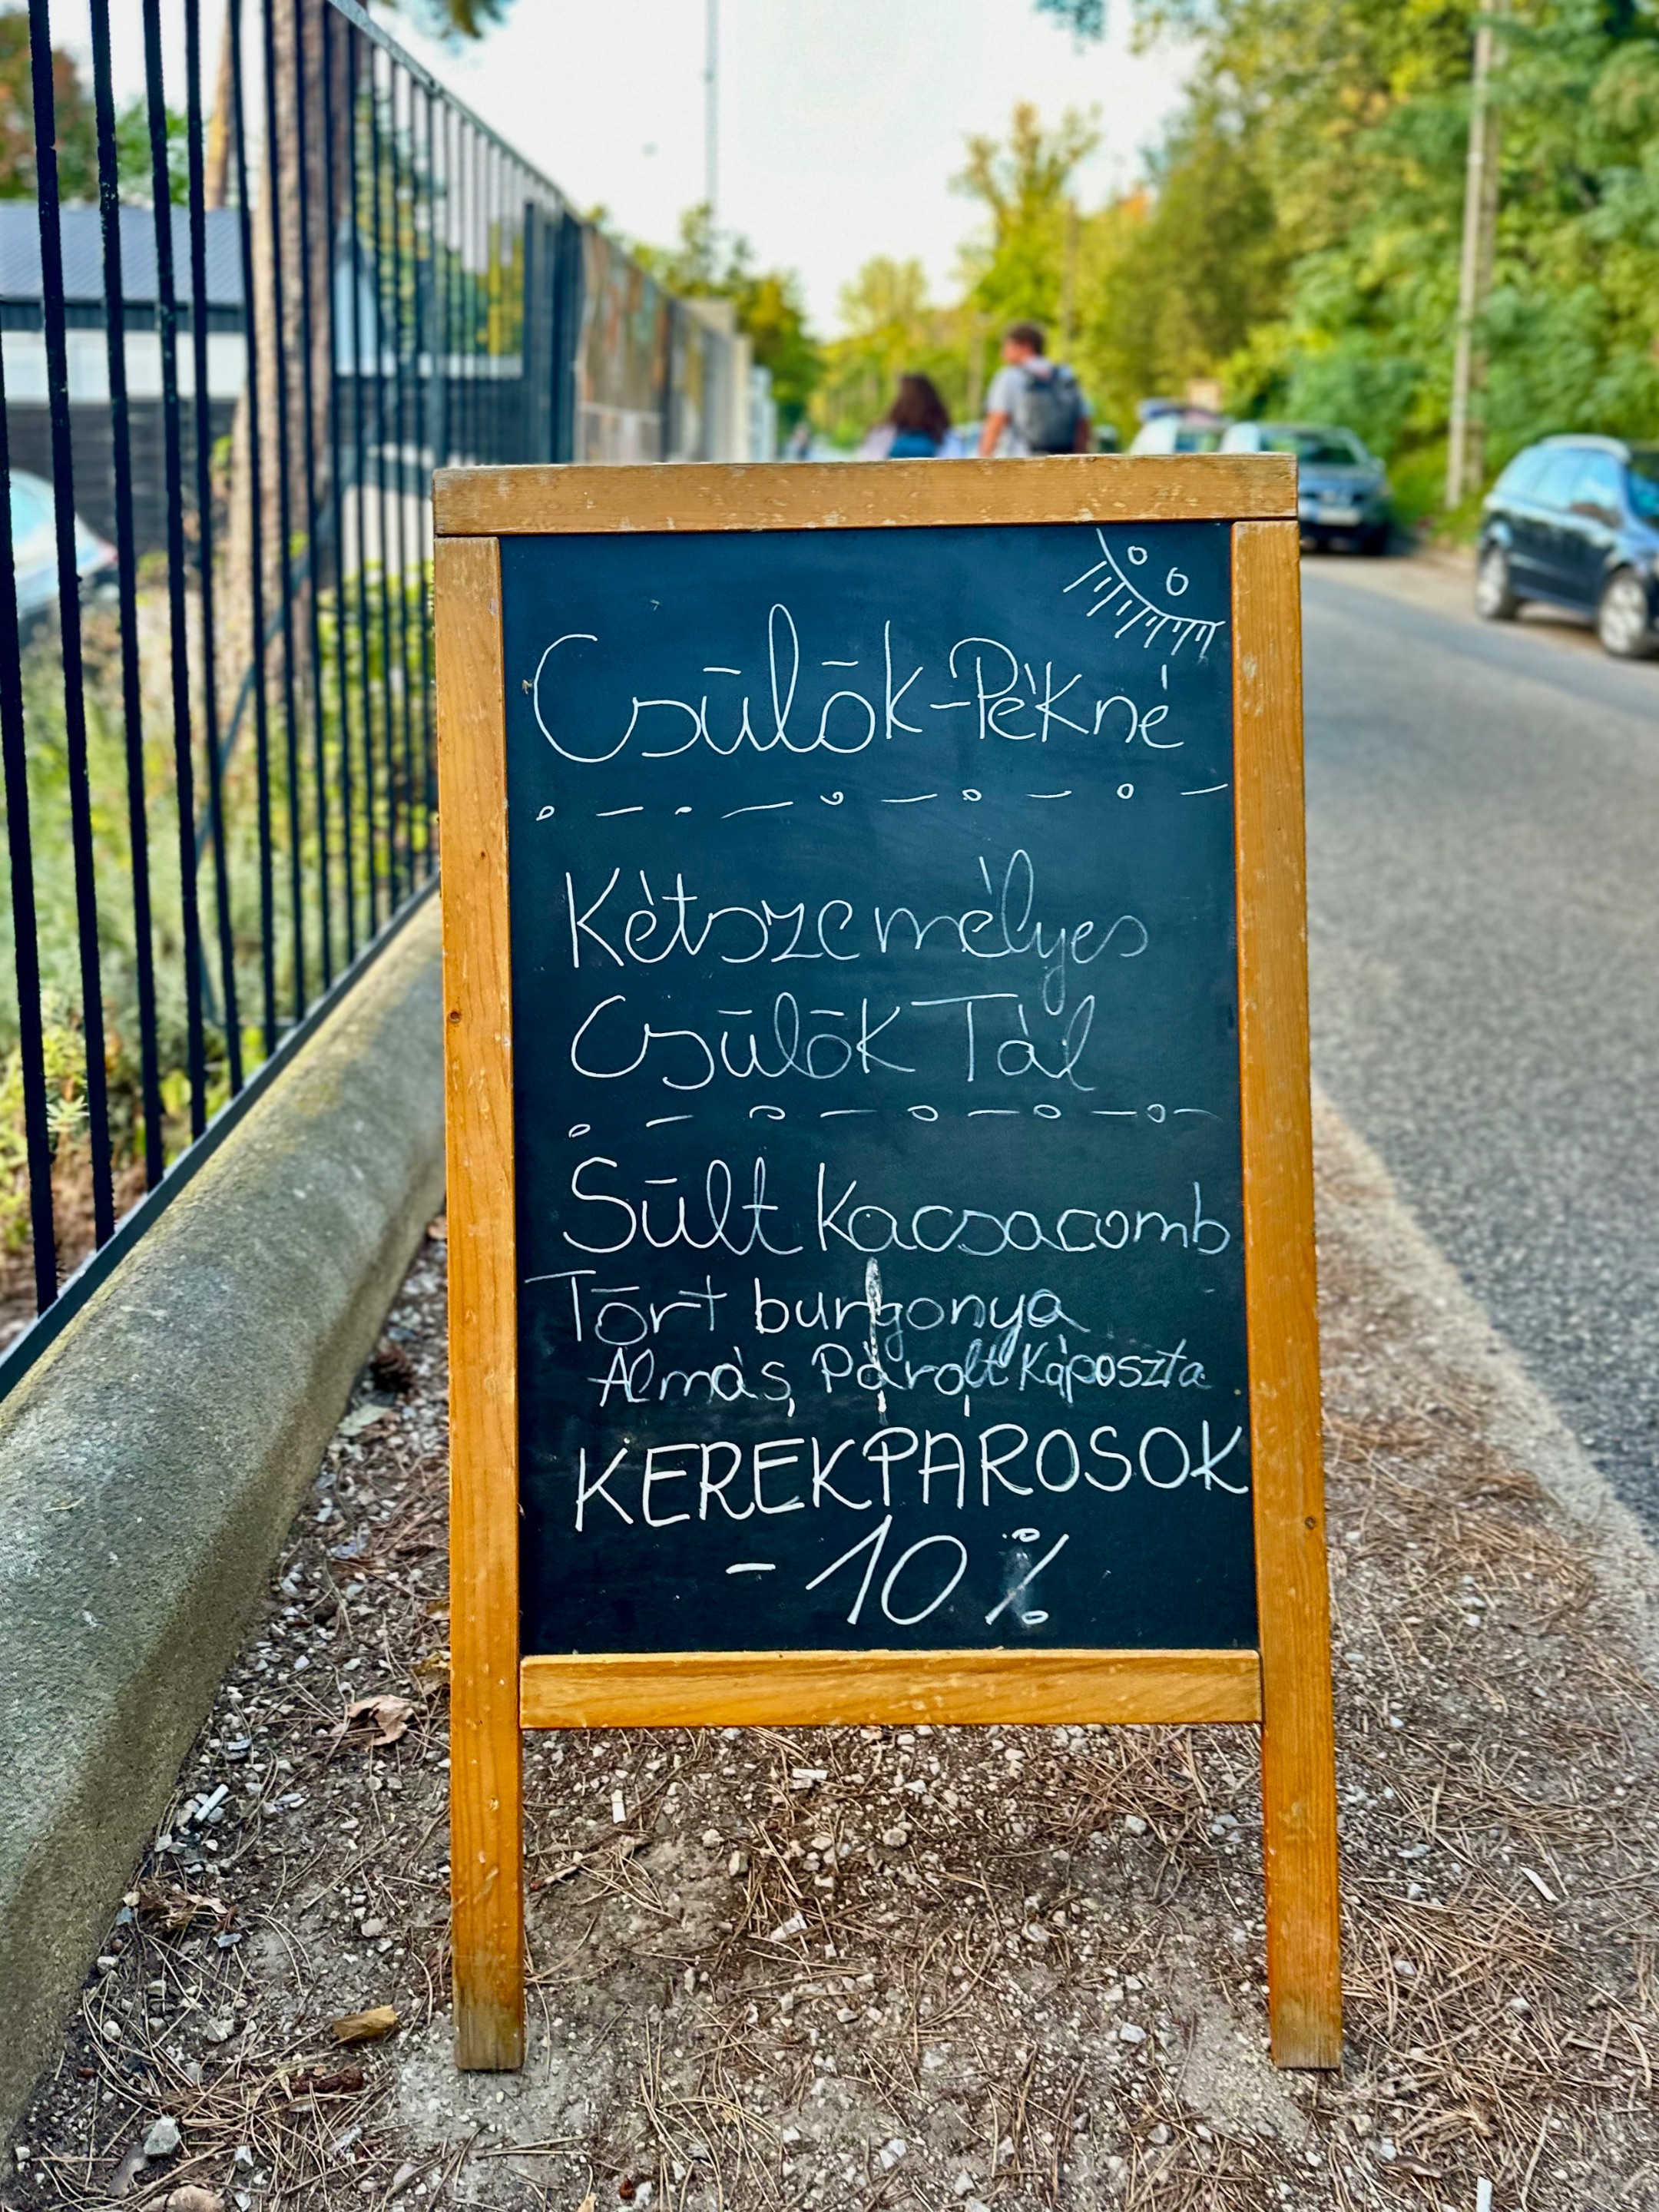 Csülök-Pékné
Kétszemélyes
Csülök Tál
Sült Kacsacomb
Tört burgonya
Almás Párolt Káposzta
KEREKPÁROSOK
- 10 %